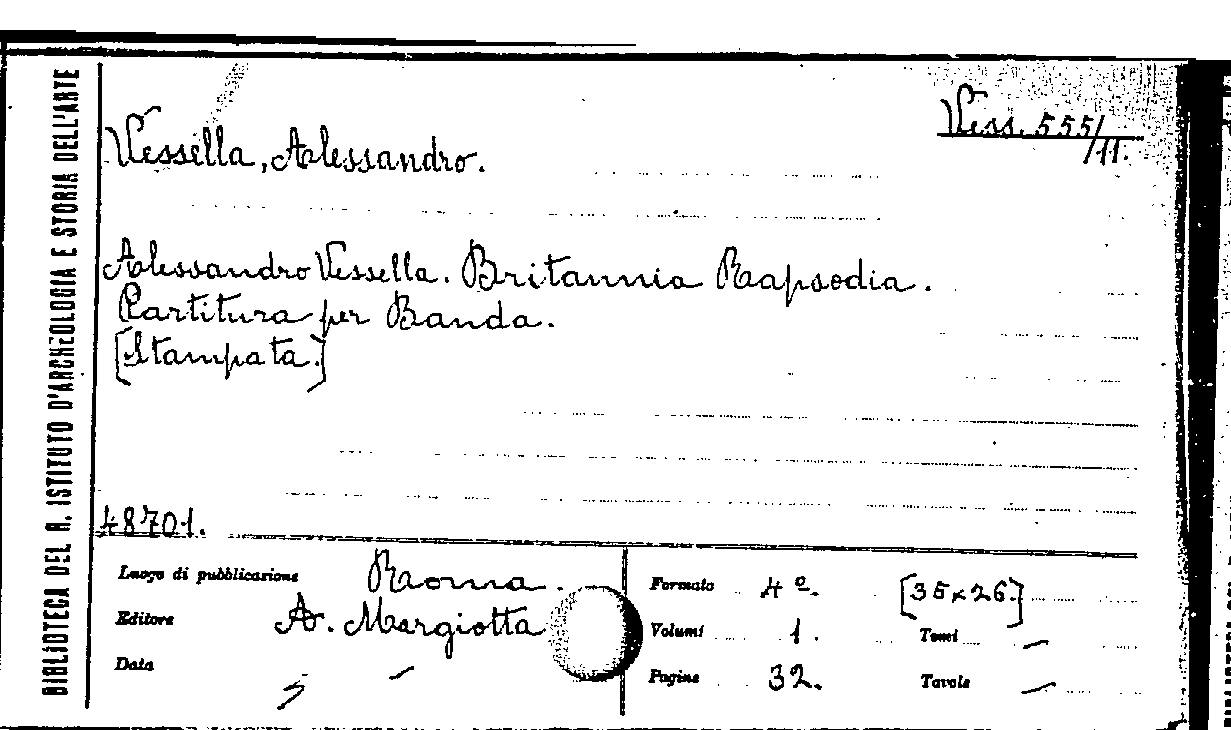 BIBLIOTECA DEL R. ISTITUTO D'ARCHEOLOGIA E STORIA DELL'ARTE
Vess. 555/
/11.
Vessella, Alessandro.
Alessandro Vessella. Britannia Rapsodia.
Partitura per Banda.
[Stampata.]
48701.
Luogo di pubblicazione Roma.
Editore A. Margiotta
Data –
Formato 4º. [35×26.]
Volumi 1. Tomi –
Pagine 32. Tavole –